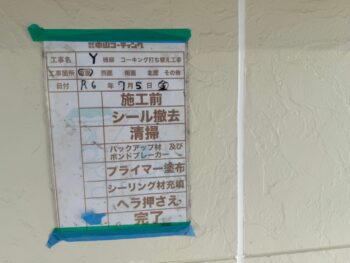 中山コーティング
工事名 Y 様邸 コーキング打ち替え工事
工事箇所 西面 南面 北面 その他
日付 R6 年 7月 5日 金
施工前
シール撤去
清掃
バックアップ材 及び
ボンドブレーカー
プライマー塗布
シーリング材充填
ヘラ押さえ
完了